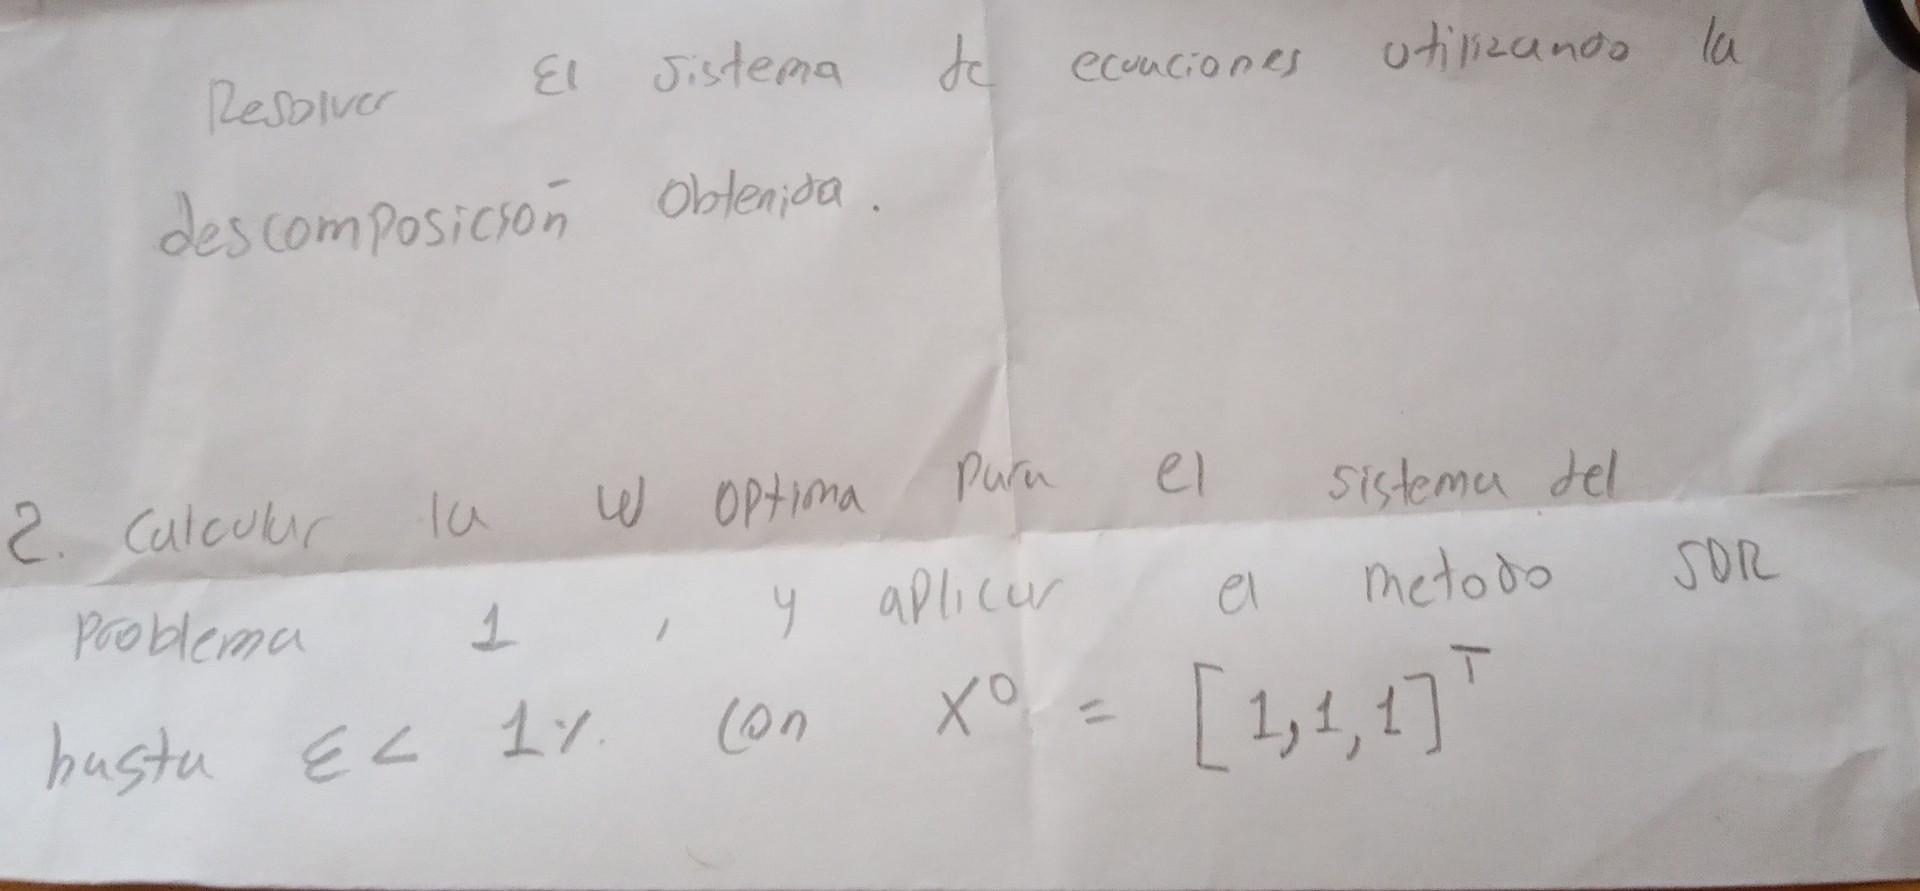 Resolver El sistema de ecuaciones utilizando la
descomposición obtenida.
2. Calcular la w optima para el sistema del
Problema 1, y aplicar el metodo SOR
hasta ε < 1%. Con X⁰ = [1,1,1]ᵀ